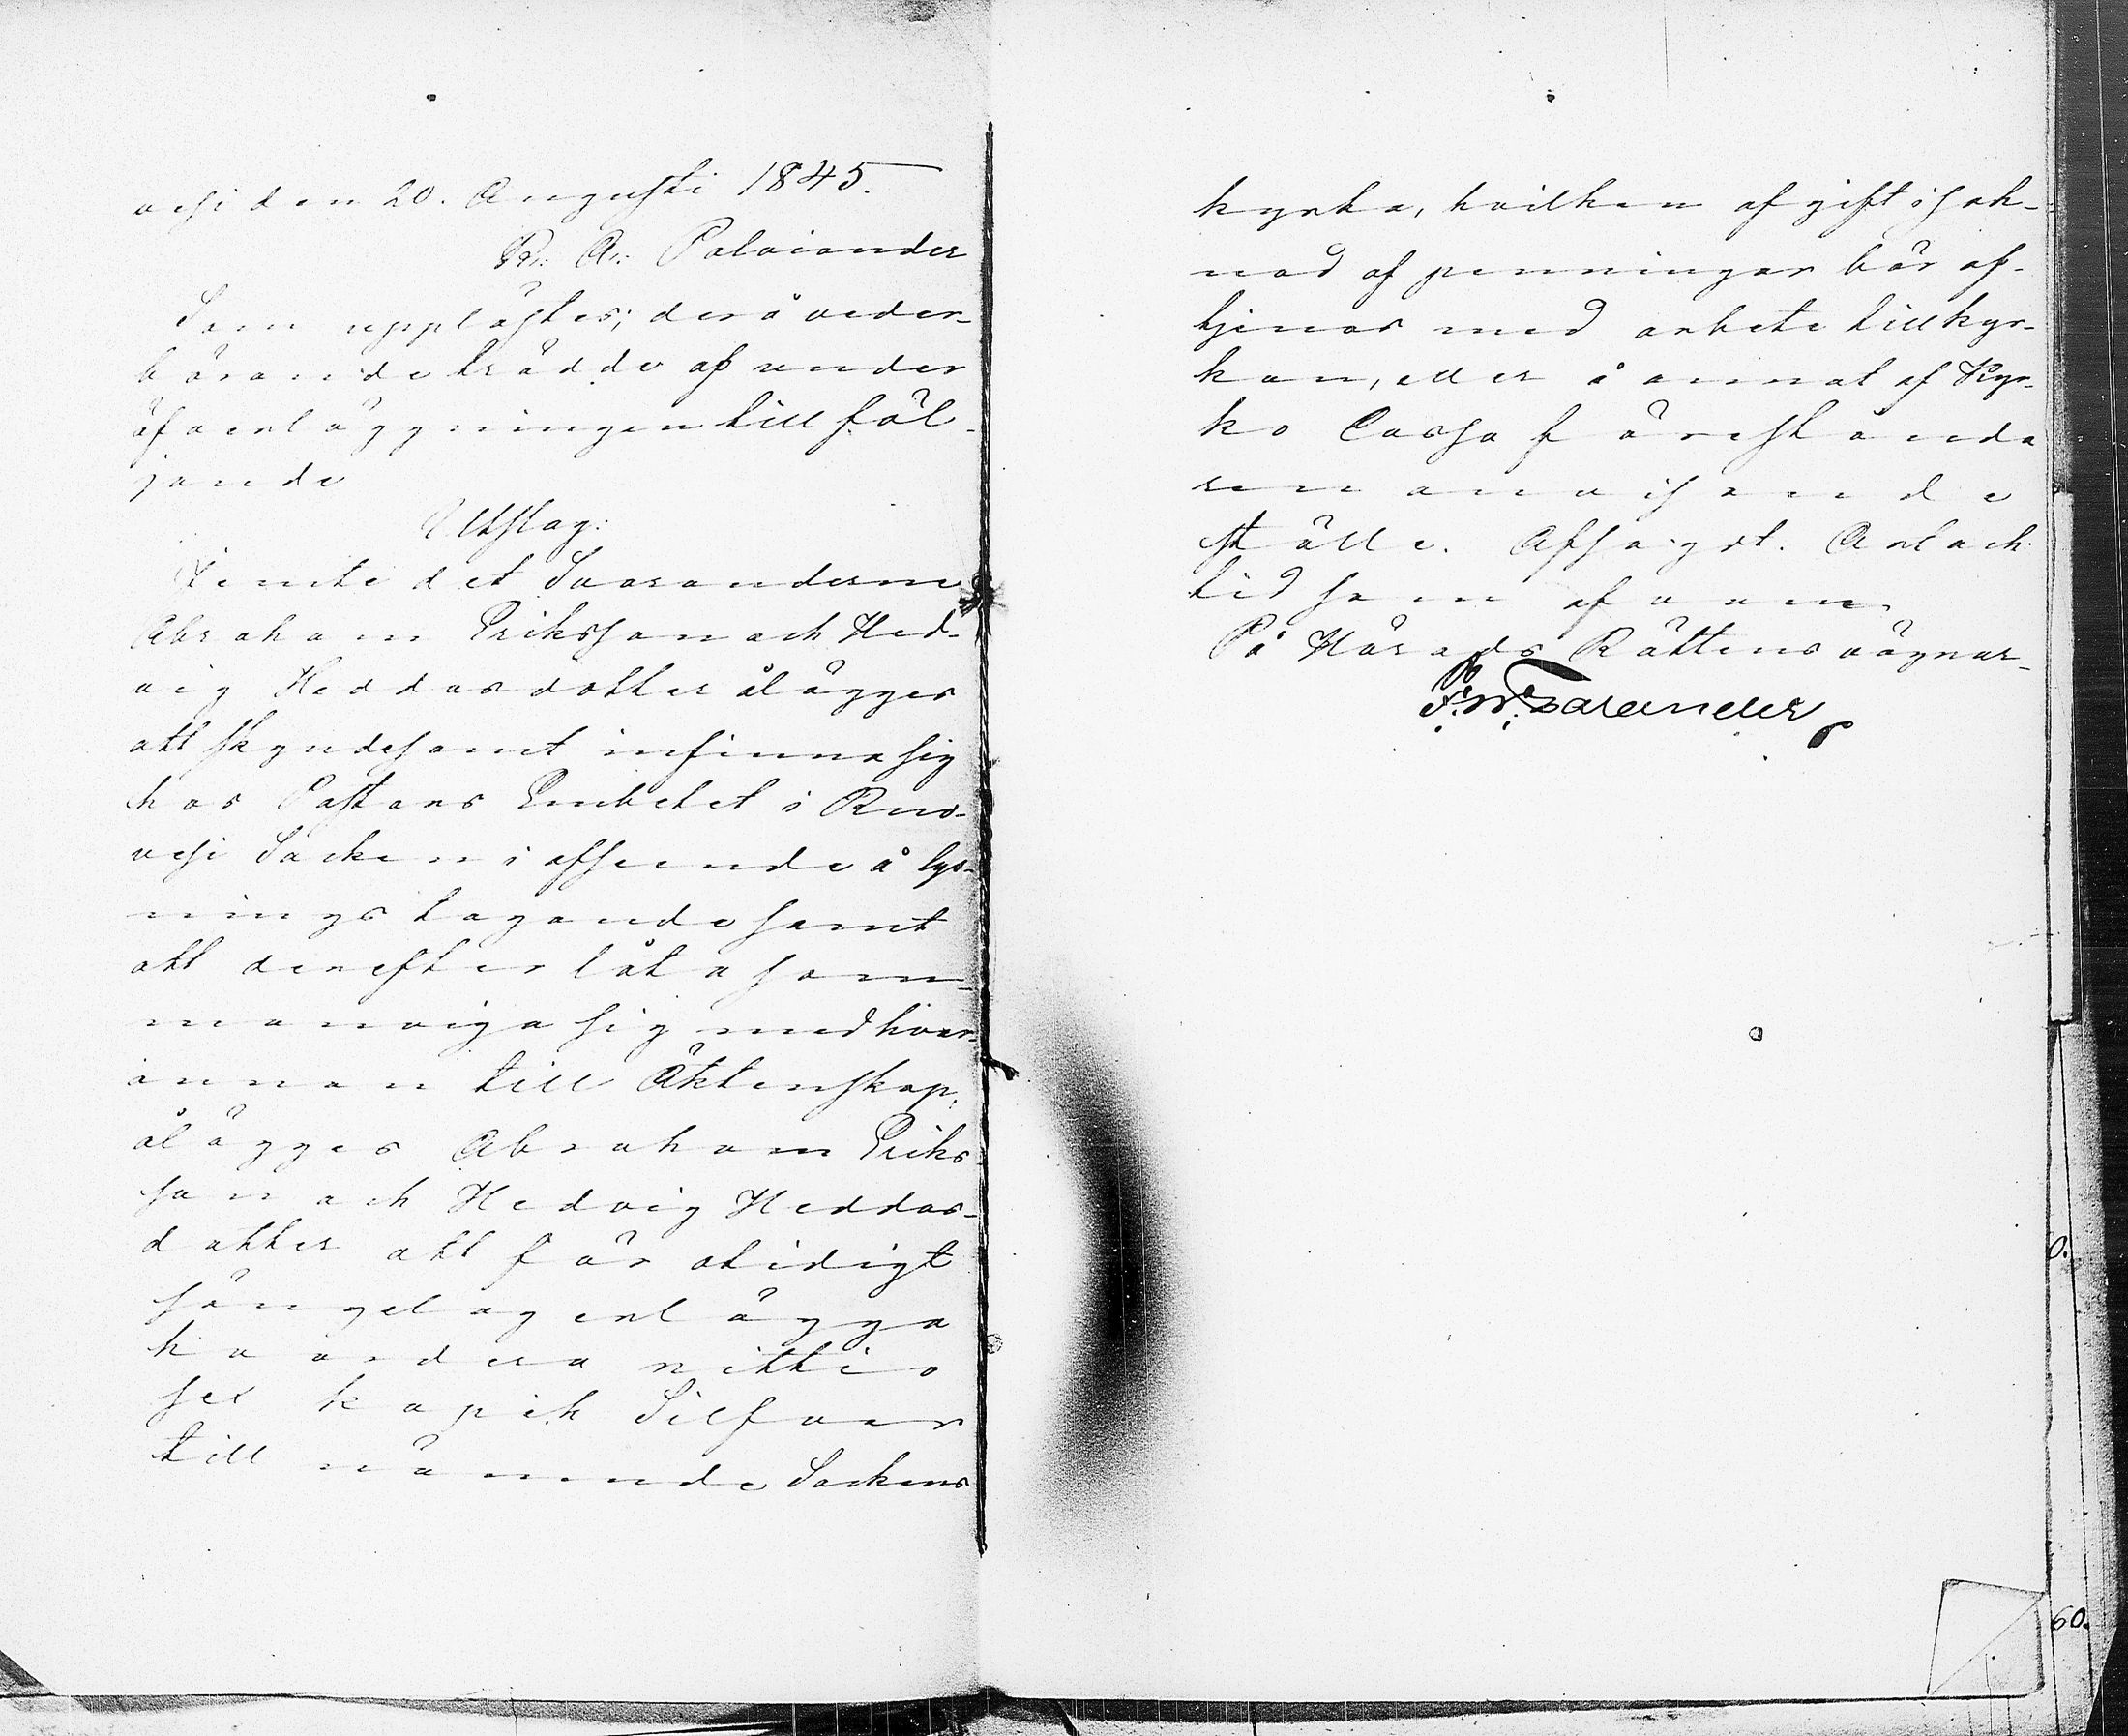 vesi den 20. Augusti 1845.
R: A: Polviander
Som upplästes; derå veder-
börande trädde af under
öfverläggningen till föl-
jande
Utslag:
Jemte det Svaranderne
Abraham Eriksson och Hed-
vig Heddasdotter ålägges
att skyndsamt infinna sig
hos Pastors Embetet i Ruo-
vesi Socken i afseende å lys-
ningstagande samt
att derefter låta sam-
manviga sig med hvar-
annan till Äktenskap,
ålägges Abraham Eriks
son och Hedvig Heddas-
dotter att för otidigt
sängelag erlägga
hvardera nittio
sex kopek Silfver
till nämnde Sockens
kyrka, hvilken afgift i sak-
nad af penningar bör af-
tjenas med arbete till kyr-
kan, eller å annat af Kyr-
ko Cassa förestånda
ren anvisande
ställe. Afsagdt. Ort och
tid som ofvan.
På Härads Rättens vägnar